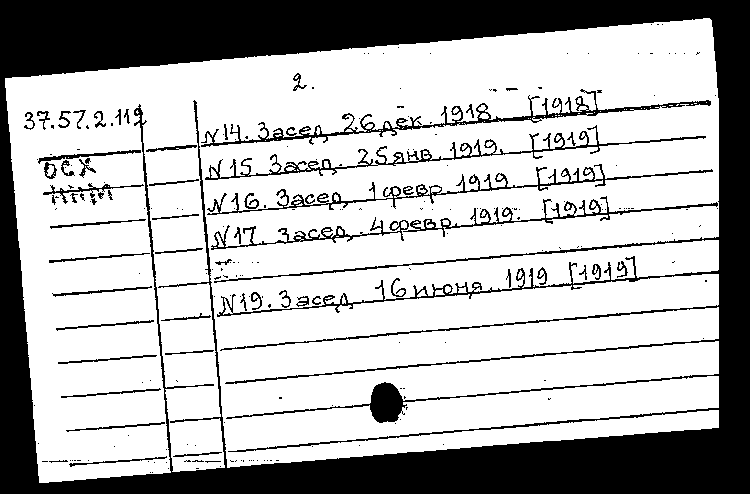 2.
37.57.2.112
N14. Засед. 26 дек. 1918. [1918]
осх
N15. Засед. 25 янв. 1919. [1919]
N16. Засед. 1 февр. 1919. [1919]
N17. Засед. 4 февр. 1919. [1919]
N19. Засед. 16 июня. 1919 [1919]